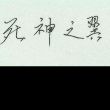 死神之翼